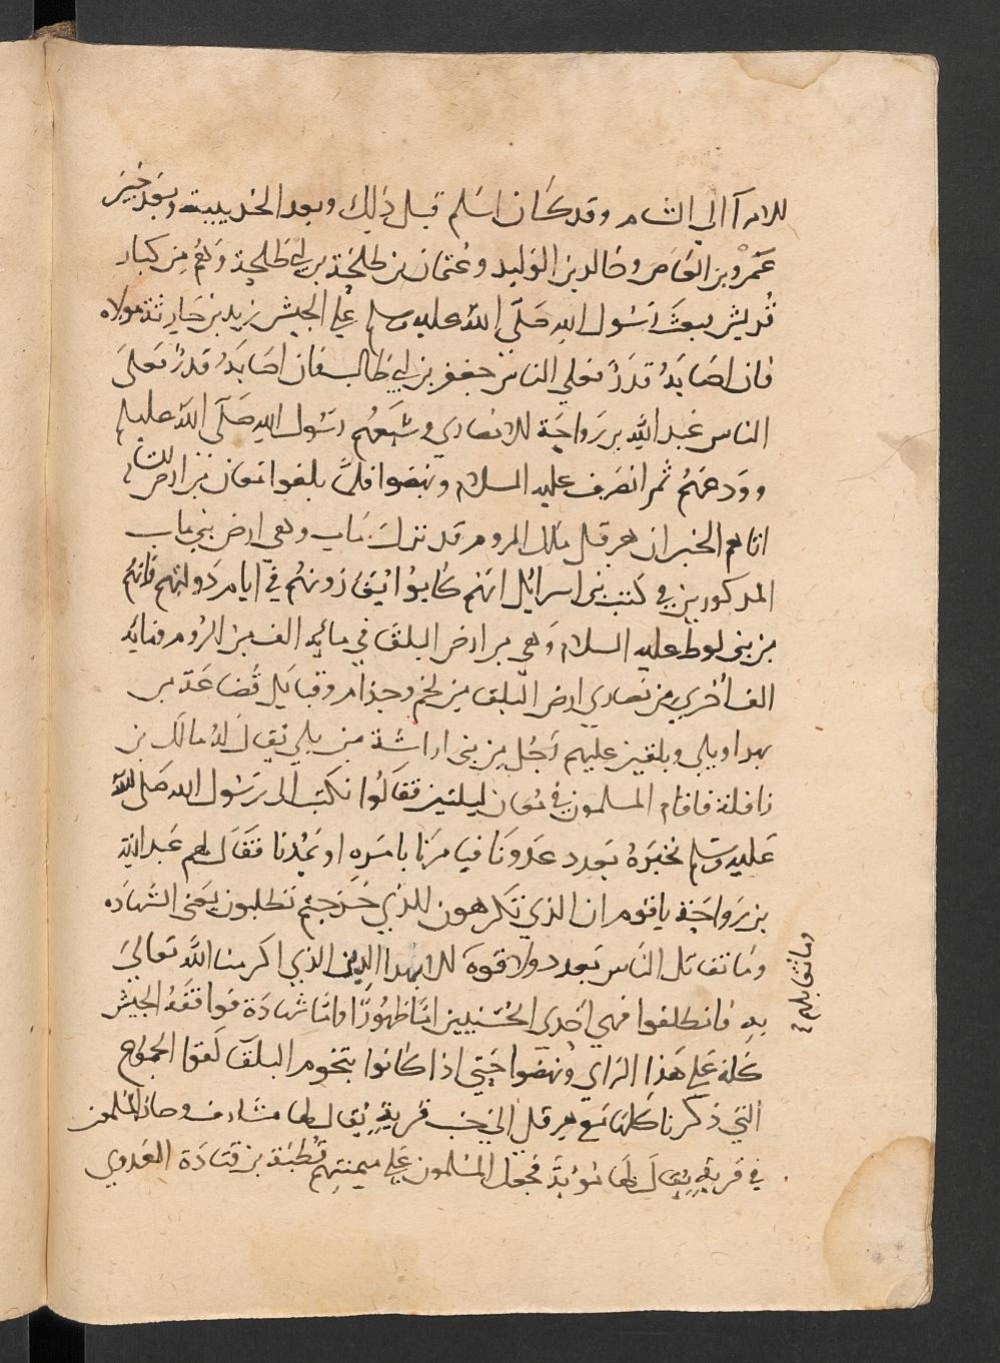 للامرآ الي الشام وقد كان اسلم قبل ذلك وبعد الحديبية وبعد خيبر
عمرو بن العاص وخالد بن الوليد وعثمان بن طلحة بن ابي طلحة وهم من كبار
قريش بعث رسول الله صلى الله عليه وسلم علي الجيش زيد بن حارثة مولاه
فان اصابه قدر فعلي الناس جعفر بن ابي طالب فان اصابه قدر فعلى
الناس عبد الله بن رواحة الانصاري وشيعهم رسول الله صلى الله عليه
وودعهم ثم انصرف عليه السلام ونهضوا فلما بلغوا معان من ارض الشام
اتاهم الخبر ان هرقل ملك الروم قد نزل مَاب وهي ارض بني ماب
المدكورين في كتب بني اسرائل انهم كانوا يغازونهم في ايام دولتهم فانهم
من بني لوط عليه السلام وهي من ارض البلقا في مائه الف من الروم ومائه
الف أخري من نصاري ارض البلقا من لخم وجذام وقبايل قضاعة من
بهرا وبلي وبلقين عليهم رجل من بني اراشة من بلي يقال له مالك بن
نافلة فاقام المسلمون في معان ليلتين فقالوا نكتب الى رسول الله صلى الله
عليه وسلم نخبره بعدد عدونا فيامرنا بامره او يمدنا فقال لهم عبد الله
بن رواحة ياقوم ان الذي تكرهون للذي خرجتم تطلبون يعني الشهاده
وما تقاتل الناس بعدد ولا قوة الا بهدا الدين الذي اكرمنا الله تعالي
وما نقاتلهم
به فانطلقوا فهي احدي الحسنيين اما ظهورا واما شهادة فوافقه الجيش
كله علي هذا الراي ونهضوا حتي اذا كانوا بتخوم البلقا لقوا الجموع
التي ذكرنا كلها مع هرقل الي جنب قرية يقال لها مشارف وصار المسلمون
في قرية يقال لها موتة فجعل المسلمون علي ميمنتهم قطبة بن قتادة العدوي